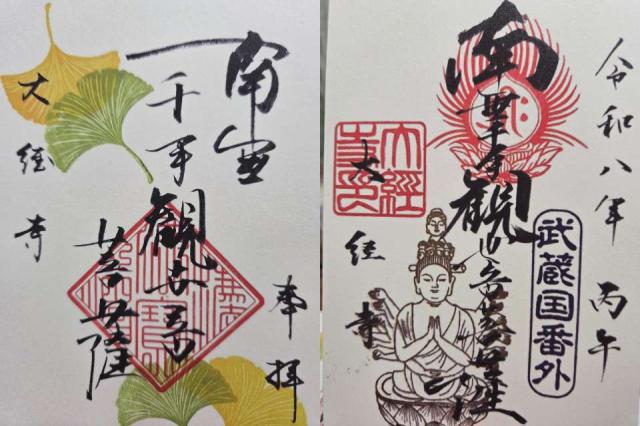 奉拝
南無
千手観世音菩薩
大経寺
令和八年 丙午
武蔵国番外
南無千手観世音菩薩
大經寺印
大経寺